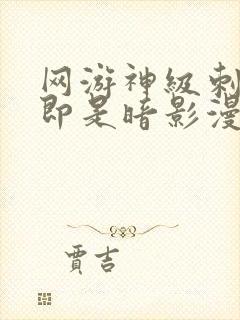 网游神级刺
即是暗影漫
贾吉